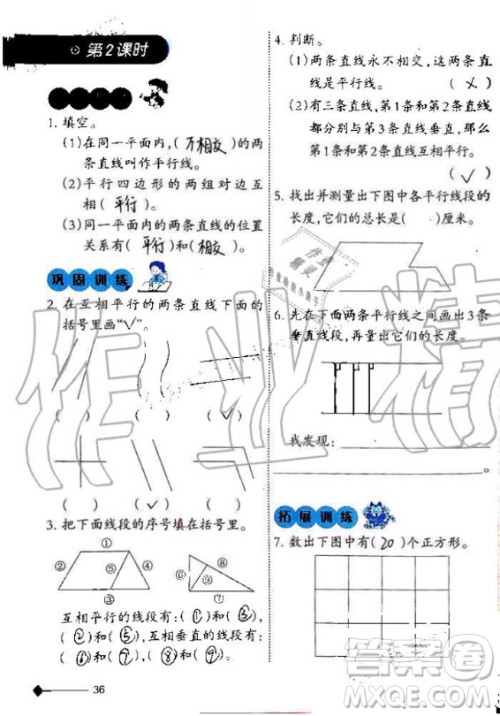 第2课时
1. 填空。
(1)在同一平面内,(不相交)的两
条直线叫作平行线。
(2)平行四边形的两组对边互
相(平行)。
(3)同一平面内的两条直线的位置
关系有(平行)和(相交)。
巩固训练
2. 在互相平行的两条直线下面的
括号里画“√”。
( ) ( ) (√)
( ) (√) ( )
3. 把下面线段的序号填在括号里。
① ② ③ ④ ⑤ ⑥ ⑦ ⑧ ⑨
互相平行的线段有:(①)和(③)、
(②)和(⑤),互相垂直的线段
有:(⑥)和(⑦)、(⑧)和(⑨)。
36
4. 判断。
(1)两条直线永不相交,这两条直
线是平行线。 (×)
(2)有三条直线,第1条和第2条直线
都分别与第3条直线垂直,那么
第1条和第2条直线互相平行。
(√)
5. 找出并测量出下图中各平行线段的
长度,它们的总长是( )厘米。
6. 先在下面两条平行线之间画出3条
垂直线段,再量出它们的长度。
我发现:
拓展训练
7. 数出下图中有(20)个正方形。
作业精
答案圈
MXQE.COM